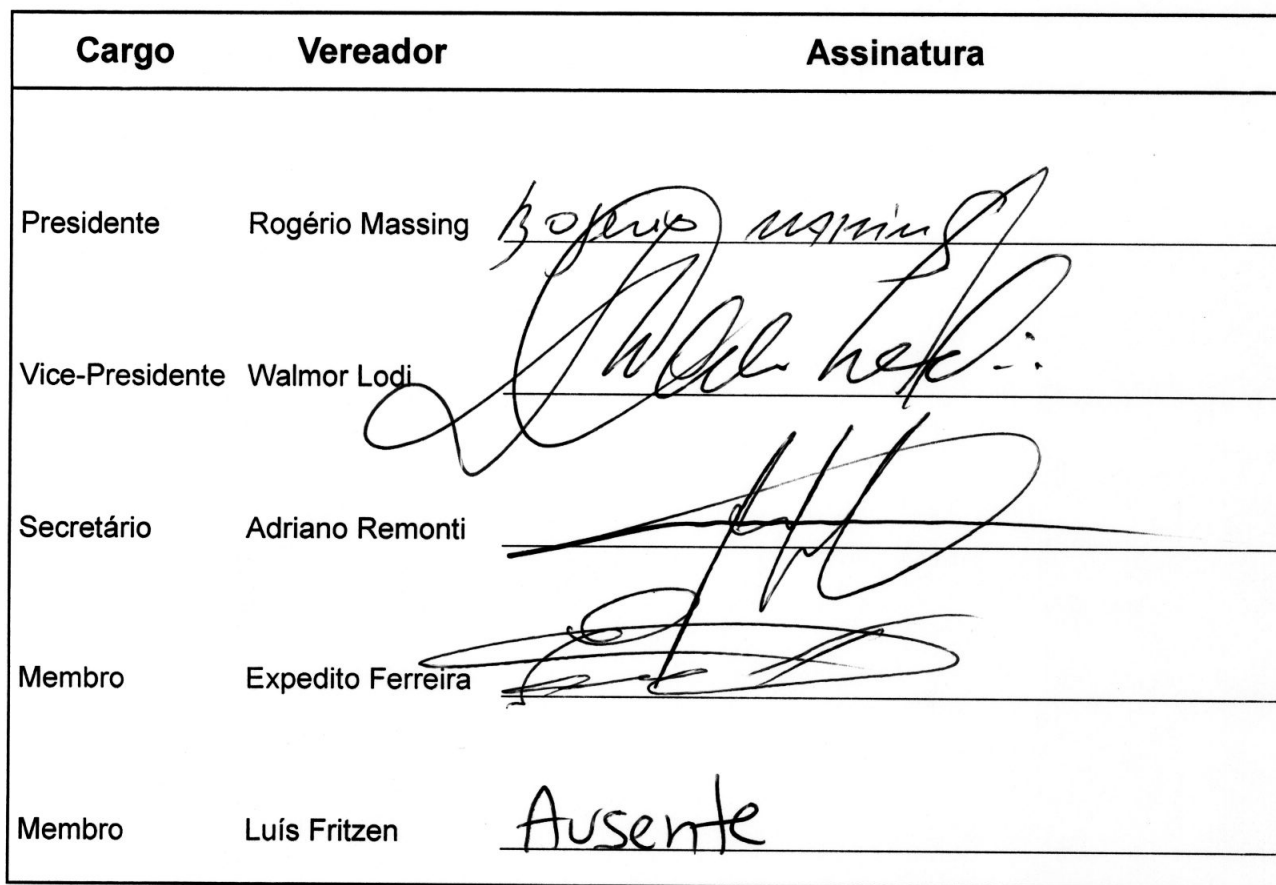 Cargo Vereador Assinatura
Presidente Rogério Massing Rogerio Massing
Vice-Presidente Walmor Lodi
Secretário Adriano Remonti
Membro Expedito Ferreira
Membro Luís Fritzen Ausente